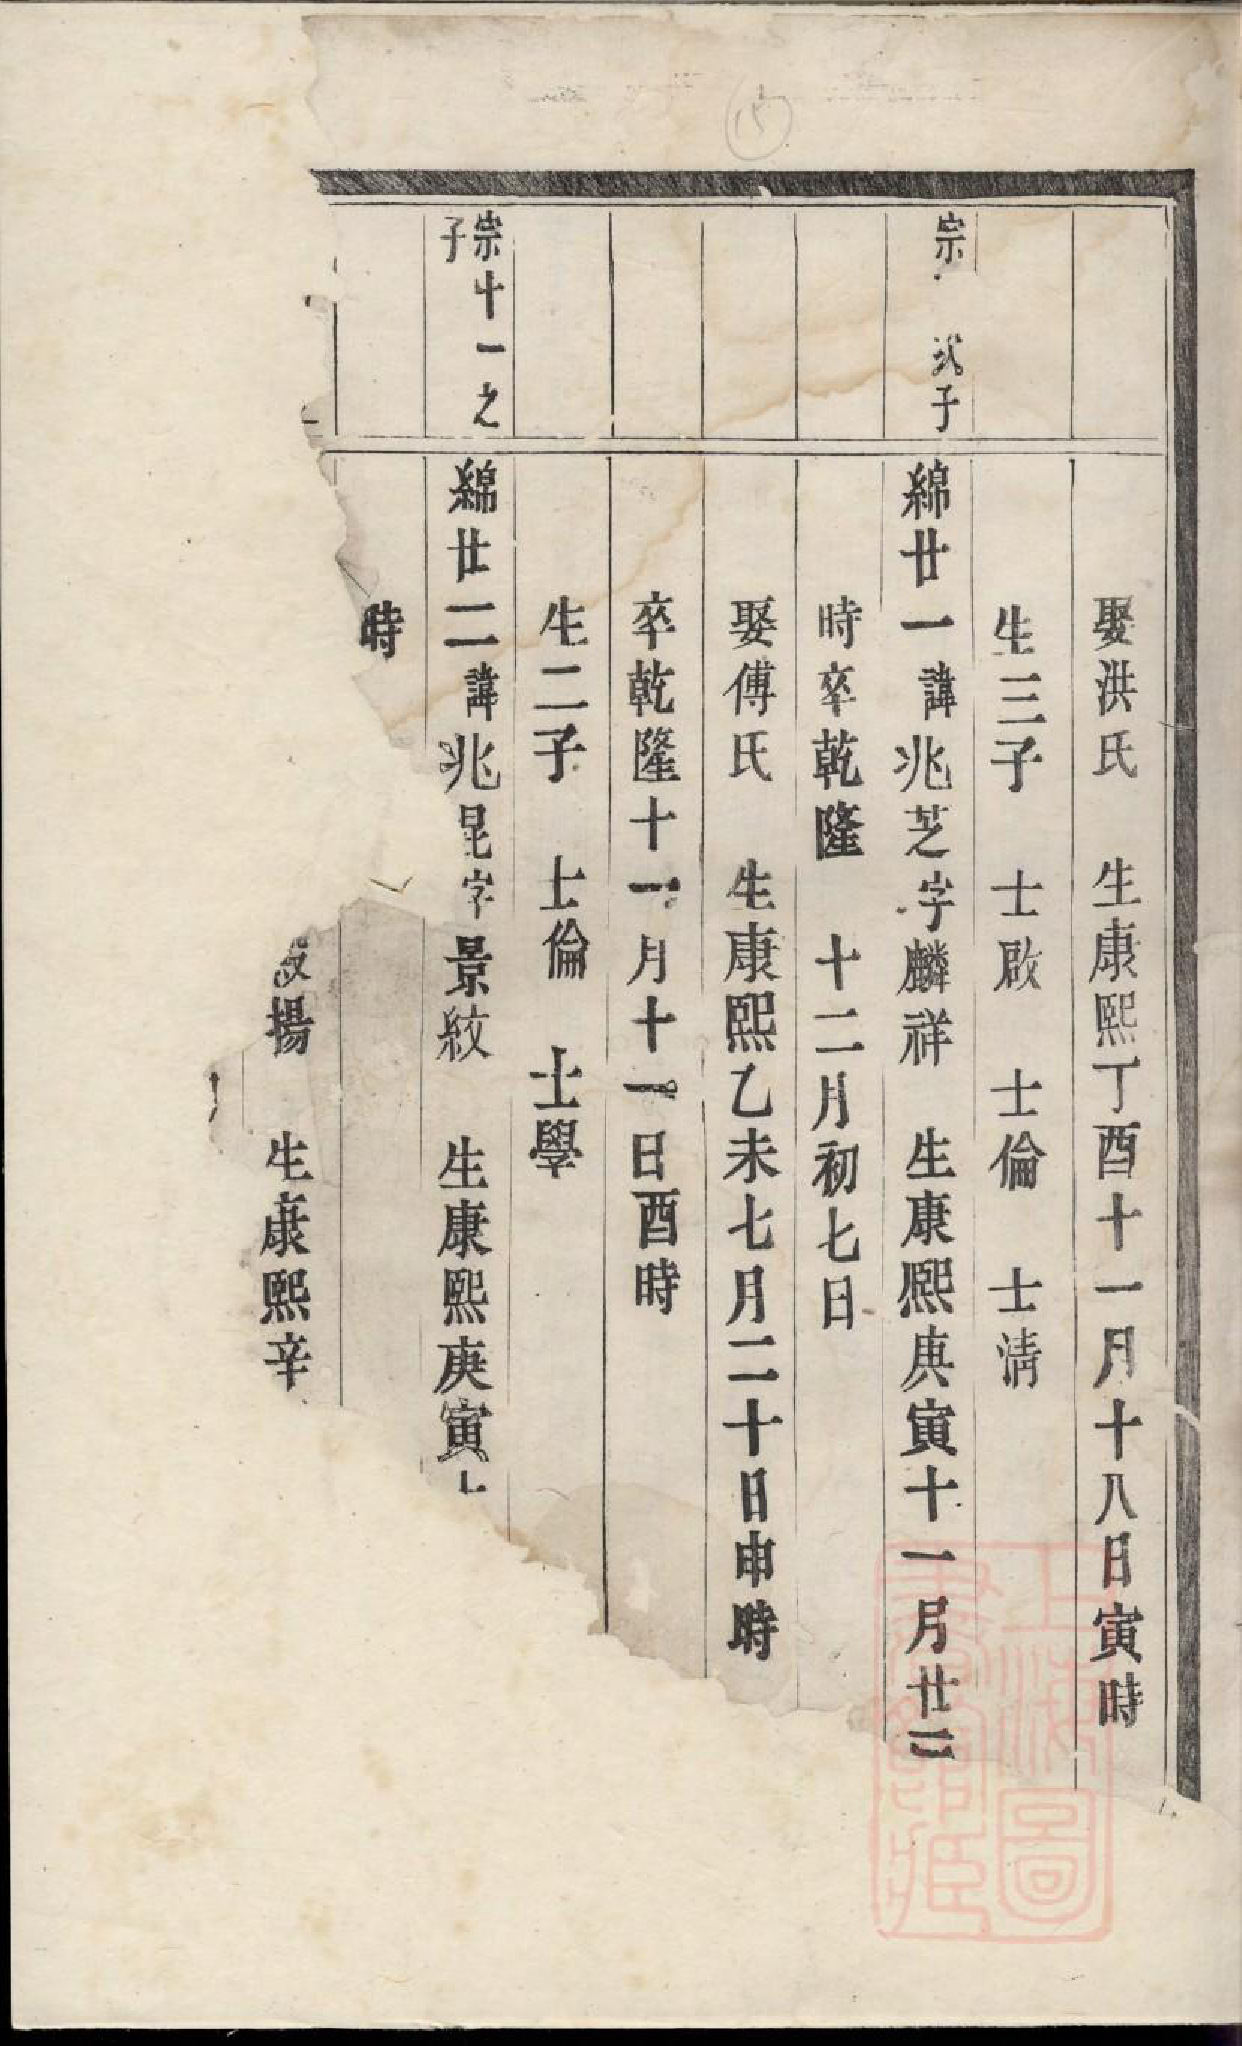 15
娶洪氏 生康熙丁酉十一月十八日寅時
生三子 士啟 士倫 士清
宗 次子
綿廿一諱兆芝字麟祥 生康熙庚寅十一月廿三
時卒乾隆 十二月初七日
娶傅氏 生康熙乙未七月二十日申時
卒乾隆十一月十一日酉時
生二子 士倫 士學
宗十一之子
綿廿二諱兆昆字景紋 生康熙庚寅
時
揚 生康熙辛
上海圖書館藏